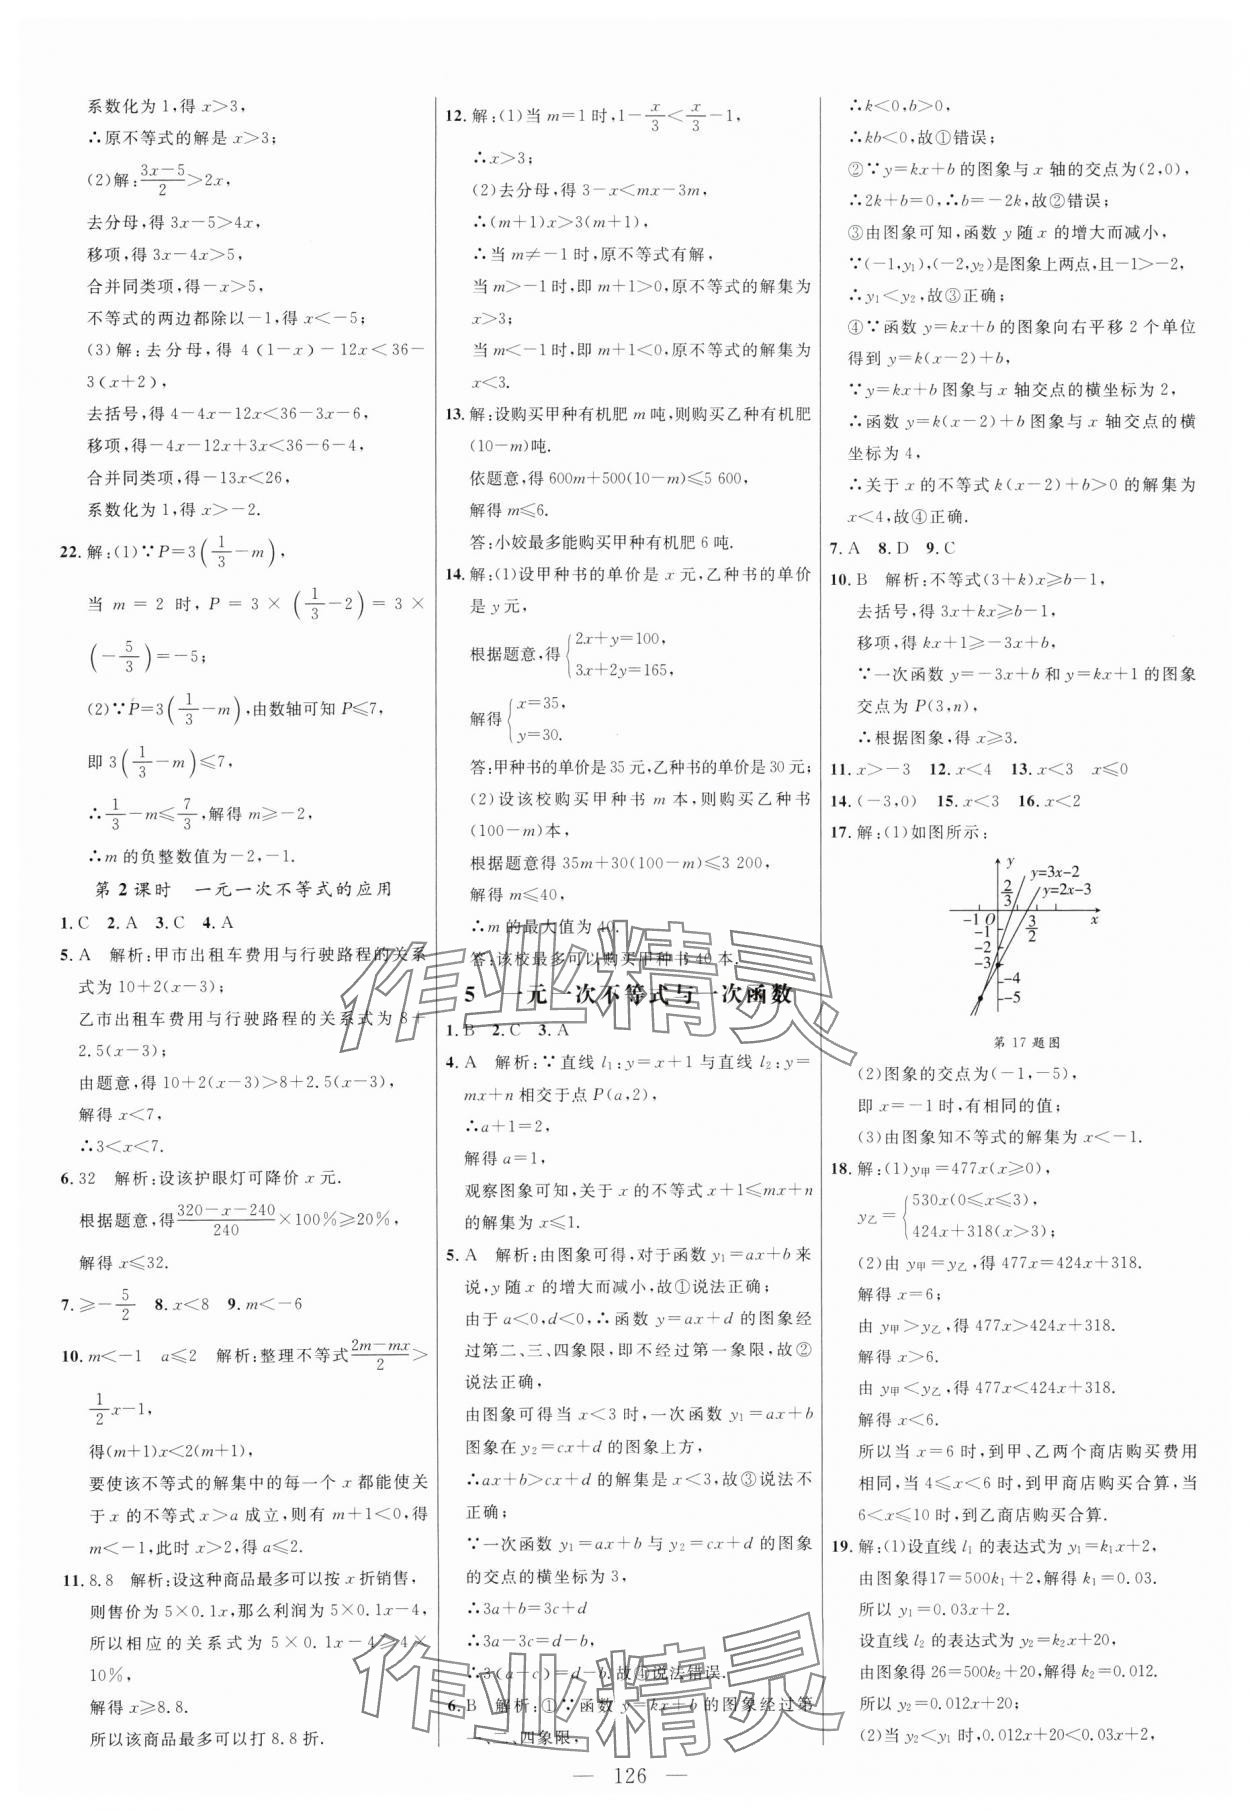 系数化为1,得x>3,
∴原不等式的解是x>3;
(2)解:$\frac{3x-5}{2}$>2x,
去分母,得3x-5>4x,
移项,得3x-4x>5,
合并同类项,得-x>5,
不等式的两边都除以-1,得x<-5;
(3)解:去分母,得4(1-x)-12x<36-
3(x+2),
去括号,得4-4x-12x<36-3x-6,
移项,得-4x-12x+3x<36-6-4,
合并同类项,得-13x<26,
系数化为1,得x>-2.
22.解:(1)∵P=3($\frac{1}{3}$-m),
当m=2时,P=3×($\frac{1}{3}$-2)=3×
(-$\frac{5}{3}$)=-5;
(2)∵P=3($\frac{1}{3}$-m),由数轴可知P≤7,
即3($\frac{1}{3}$-m)≤7,
∴$\frac{1}{3}$-m≤$\frac{7}{3}$,解得m≥-2,
∴m的负整数值为-2,-1.
第2课时 一元一次不等式的应用
1.C 2.A 3.C 4.A
5.A 解析:甲市出租车费用与行驶路程的关系
式为10+2(x-3);
乙市出租车费用与行驶路程的关系式为8+
2.5(x-3);
由题意,得10+2(x-3)>8+2.5(x-3),
解得x<7,
∴3<x<7.
6.32 解析:设该护眼灯可降价x元.
根据题意,得$\frac{320-x-240}{240}$×100%≥20%,
解得x≤32.
7.≥-$\frac{5}{2}$ 8.x<8 9.m<-6
10.m<-1 a≤2 解析:整理不等式$\frac{2m-mx}{2}$>
$\frac{1}{2}$x-1,
得(m+1)x<2(m+1),
要使该不等式的解集中的每一个x都能使关
于x的不等式x>a成立,则有m+1<0,得
m<-1,此时x>2,得a≤2.
11.8.8 解析:设这种商品最多可以按x折销售,
则售价为5×0.1x,那么利润为5×0.1x-4,
所以相应的关系式为5×0.1x-4≥4×
10%,
解得x≥8.8.
所以该商品最多可以打8.8折.
12.解:(1)当m=1时,1-$\frac{x}{3}$<$\frac{x}{3}$-1,
∴x>3;
(2)去分母,得3-x<mx-3m,
∴(m+1)x>3(m+1),
∴当m≠-1时,原不等式有解,
当m>-1时,即m+1>0,原不等式的解集为
x>3;
当m<-1时,即m+1<0,原不等式的解集为
x<3.
13.解:设购买甲种有机肥m吨,则购买乙种有机肥
(10-m)吨.
依题意,得600m+500(10-m)≤5 600,
解得m≤6.
答:小姣最多能购买甲种有机肥6吨.
14.解:(1)设甲种书的单价是x元,乙种书的单价
是y元,
根据题意,得{2x+y=100,
3x+2y=165,
解得{x=35,
y=30.
答:甲种书的单价是35元,乙种书的单价是30元;
(2)设该校购买甲种书m本,则购买乙种书
(100-m)本,
根据题意得35m+30(100-m)≤3 200,
解得m≤40,
∴m的最大值为40.
答:该校最多可以购买甲种书40本.
5 一元一次不等式与一次函数
1.B 2.C 3.A
4.A 解析:∵直线l₁:y=x+1与直线l₂:y=
mx+n相交于点P(a,2),
∴a+1=2,
解得a=1,
观察图象可知,关于x的不等式x+1≤mx+n
的解集为x≤1.
5.A 解析:由图象可得,对于函数y₁=ax+b来
说,y随x的增大而减小,故①说法正确;
由于a<0,d<0,∴函数y=ax+d的图象经
过第二、三、四象限,即不经过第一象限,故②
说法正确,
由图象可得当x<3时,一次函数y₁=ax+b
图象在y₂=cx+d的图象上方,
∴ax+b>cx+d的解集是x<3,故③说法不
正确;
∵一次函数y₁=ax+b与y₂=cx+d的图象
的交点的横坐标为3,
∴3a+b=3c+d
∴3a-3c=d-b,
∴3(a-c)=d-b.故④说法错误.
6.B 解析:①∵函数y=kx+b的图象经过第
一、二、四象限,
∴k<0,b>0,
∴kb<0,故①错误;
②∵y=kx+b的图象与x轴的交点为(2,0),
∴2k+b=0,∴b=-2k,故②错误;
③由图象可知,函数y随x的增大而减小,
∵(-1,y₁),(-2,y₂)是图象上两点,且-1>-2,
∴y₁<y₂,故③正确;
④∵函数y=kx+b的图象向右平移2个单位
得到y=k(x-2)+b,
∵y=kx+b图象与x轴交点的横坐标为2,
∴函数y=k(x-2)+b图象与x轴交点的横
坐标为4,
∴关于x的不等式k(x-2)+b>0的解集为
x<4,故④正确.
7.A 8.D 9.C
10.B 解析:不等式(3+k)x≥b-1,
去括号,得3x+kx≥b-1,
移项,得kx+1≥-3x+b,
∵一次函数y=-3x+b和y=kx+1的图象
交点为P(3,n),
∴根据图象,得x≥3.
11.x>-3 12.x<4 13.x<3 x≤0
14.(-3,0) 15.x<3 16.x<2
17.解:(1)如图所示:
y
$\frac{2}{3}$
y=3x-2
y=2x-3
-1 O $\frac{3}{2}$ x
-1
-2
-3
-4
-5
第17题图
(2)图象的交点为(-1,-5),
即x=-1时,有相同的值;
(3)由图象知不等式的解集为x<-1.
18.解:(1)y甲=477x(x≥0),
y乙={530x(0≤x≤3),
424x+318(x>3);
(2)由y甲=y乙,得477x=424x+318.
解得x=6;
由y甲>y乙,得477x>424x+318.
解得x>6.
由y甲<y乙,得477x<424x+318.
解得x<6.
所以当x=6时,到甲、乙两个商店购买费用
相同,当4≤x<6时,到甲商店购买合算,当
6<x≤10时,到乙商店购买合算.
19.解:(1)设直线l₁的表达式为y₁=k₁x+2,
由图象得17=500k₁+2,解得k₁=0.03.
所以y₁=0.03x+2.
设直线l₂的表达式为y₂=k₂x+20,
由图象得26=500k₂+20,解得k₂=0.012.
所以y₂=0.012x+20;
(2)当y₂<y₁时,0.012x+20<0.03x+2,
— 126 —
作业精灵
作业精灵